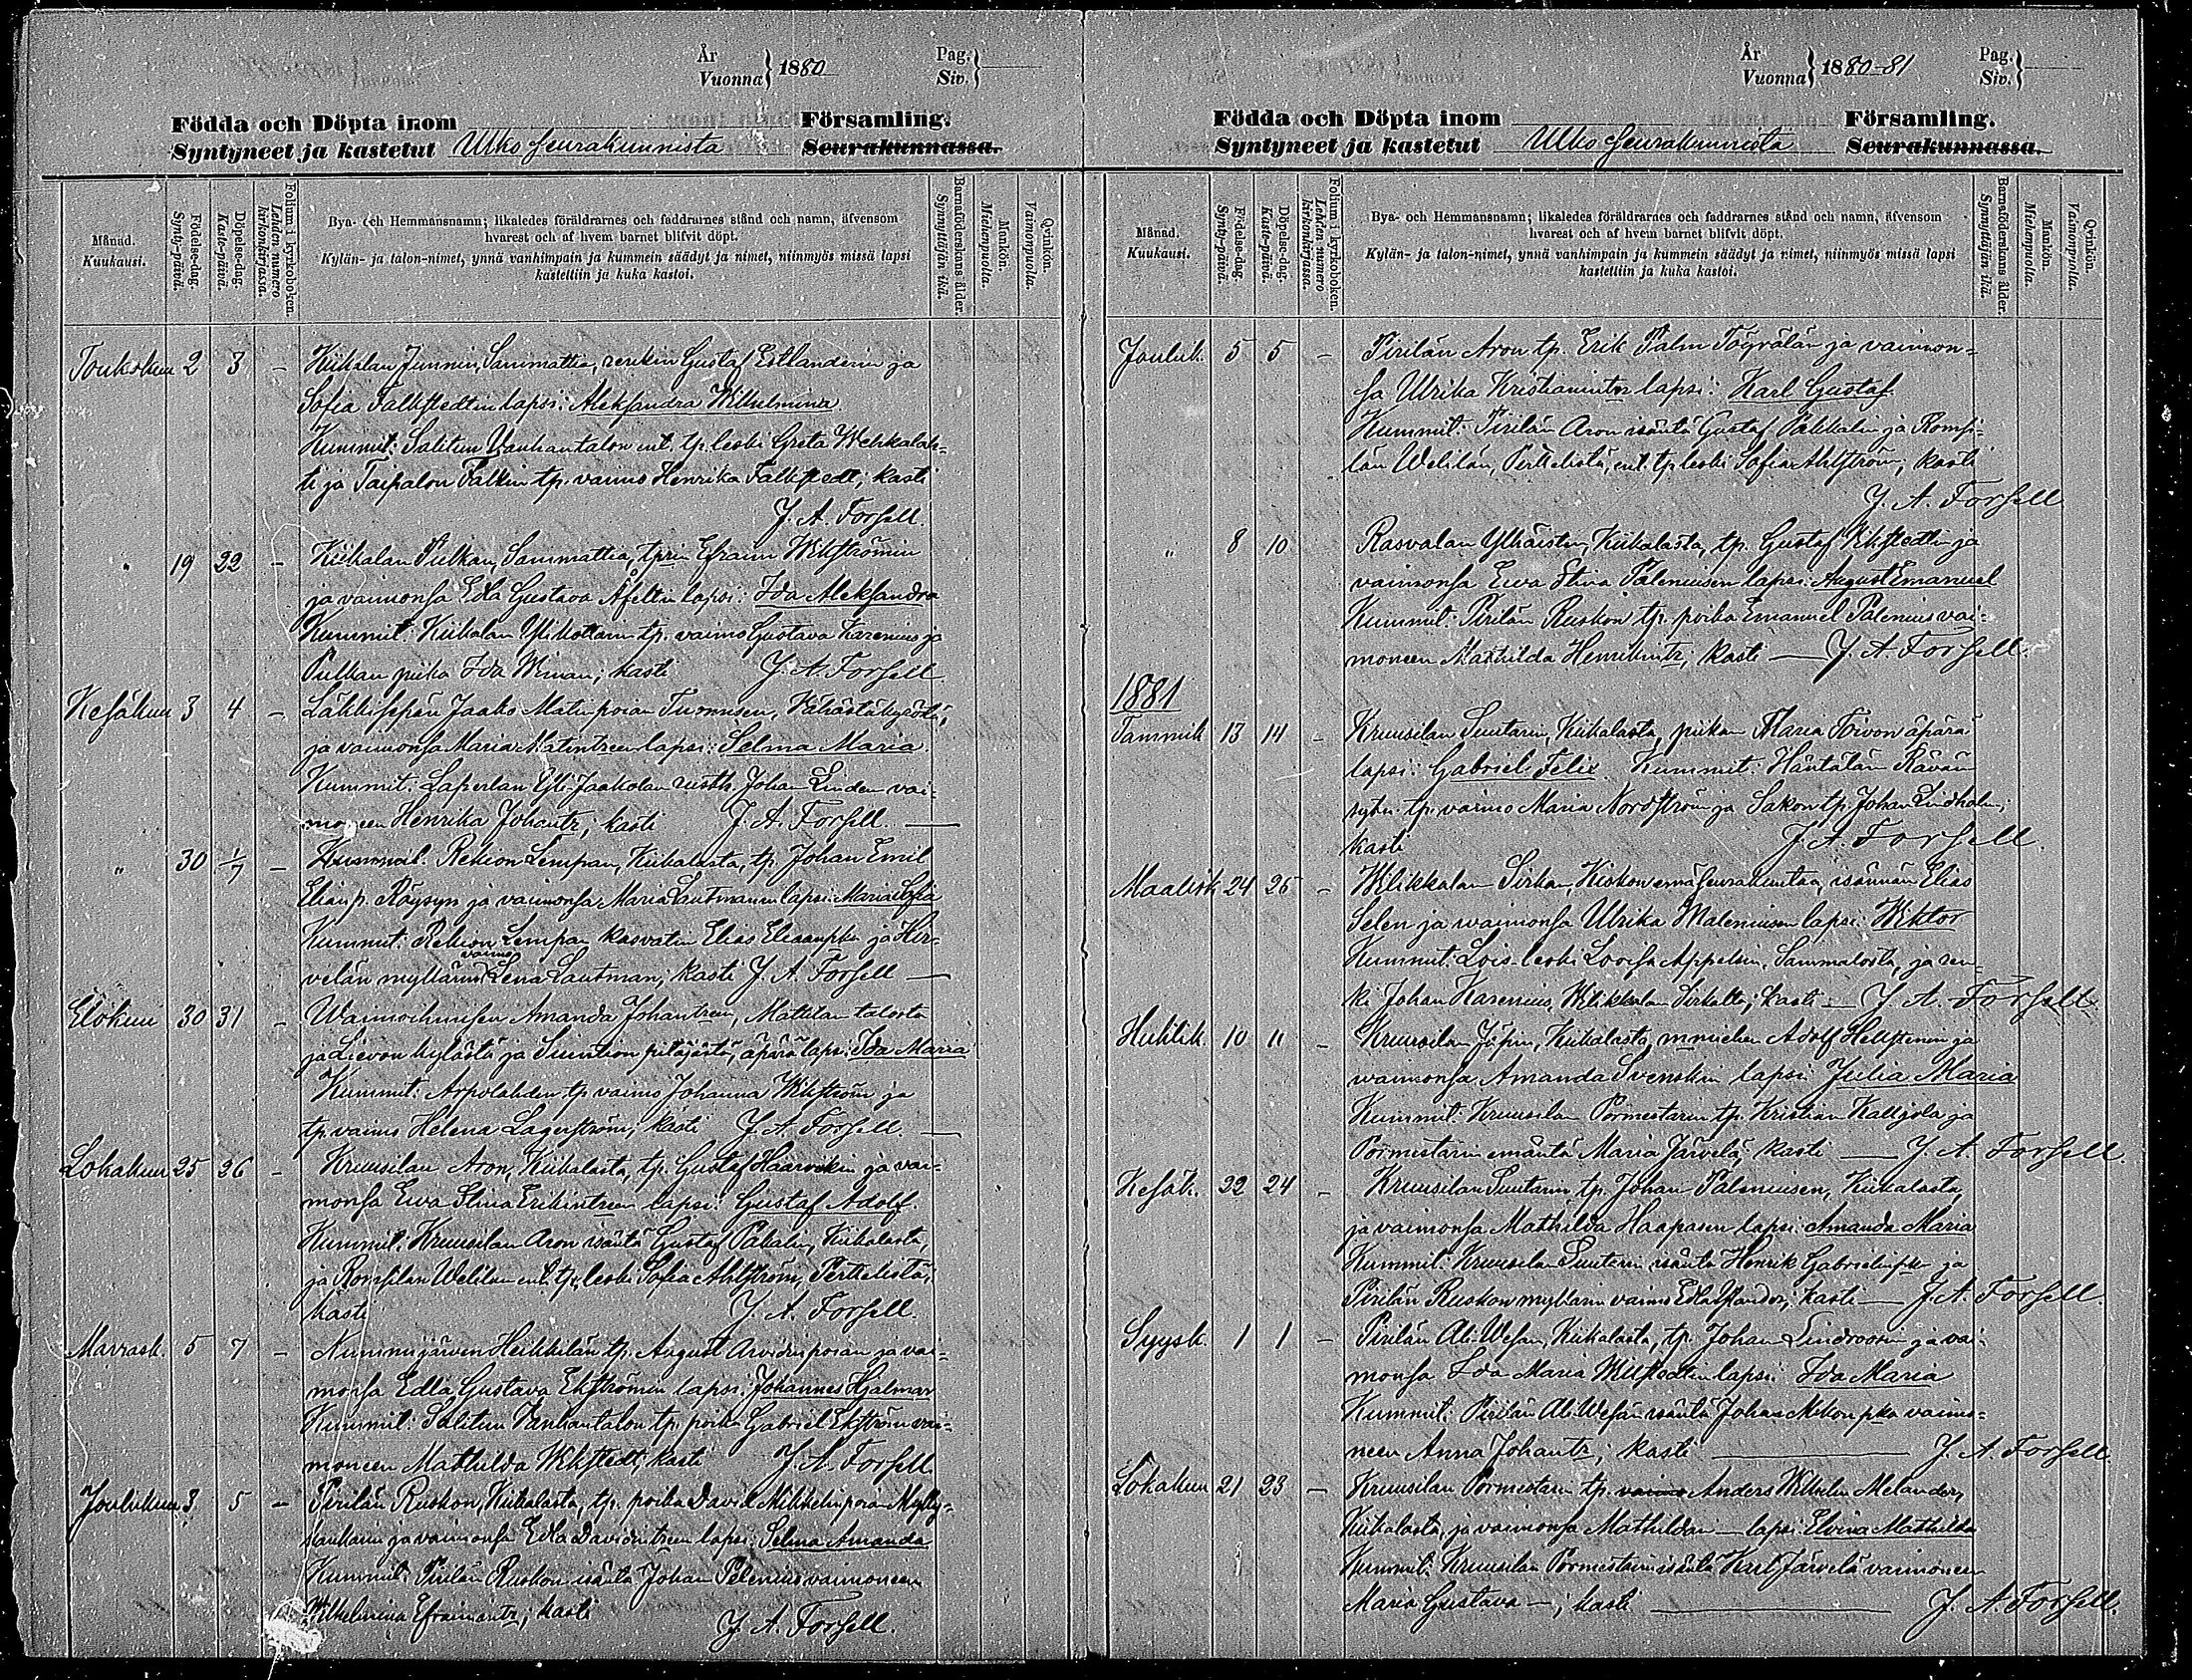 År
Vuonna } 1880
Pag.
Siv. }
Födda och Döpta inom Församling.
Syntyneet ja kastetut Ulko seurakunnista Seurakunnassa.
Månad.
Kuukausi.
Födelse-dag.
Synty-päivä.
Döpelse-dag.
Kaste-päivä.
Folium i kyrkoboken.
Lehden numero kirkonkirjassa.
Bya- och Hemmansnamn; likaledes föräldrarnes och faddrarnes stånd och namn, äfvensom
hvarest och af hvem barnet blifvit döpt.
Kylän- ja talon-nimet, ynnä vanhimpain ja kummein säädyt ja nimet, niinmyös missä lapsi
kastettiin ja kuka kastoi.
Barnaföderskans ålder.
Synnyttäjän ikä.
Mankön.
Miehenpuolia.
Qvinkön.
Vaimonpuolia.
Toukokuu 2 3 – Kiikalan Junnin, Sammattia, renkin Gustaf Estlanderin ja
Sofia Falkstedtin lapsi: Aleksandra Wilhelmina.
Kummit: Salitun Vanhantalon ent. tp. leski Greta Wehkalah-
ti ja Taipalon Falkin tp. vaimo Henrika Falkstedt; kasti
J. A. Forsell.
" 19 22 – Kiikalan Pulkan, Sammattia, tprin Efraim Wikströmin
ja vaimonsa Edla Gustava Åfeltin lapsi: Ida Aleksandra
Kummit: Kiikalan tp. vaimo Gustava Karenius ja
Pulkan piika Ida Winan; kasti J. A. Forsell.
Kesäkuu 3 4 – Läkkisepän Jaako Matinpoian Tuomisen,
ja vaimonsa Maria Matintreen lapsi: Selma Maria.
Kummit: Laperlan Yli-Jaakolan rusth. Johan Linden vai-
moneen Henrika Johantr; kasti J. A. Forsell. —
" 30 1/7 – Rekion Lempan, Kiikalasta, tp. Johan Emil
Elian p. Röysyn ja vaimonsa Maria Lautmanin lapsi: Maria Sofia
Kummit: Rekion Lempan kasvatin Elias Eliaanpka ja Hir-
velän myllärin vaimo Lena Lautman; kasti J. A. Forsell —
Elokuu 30 31 – Waimoihmisen Amanda Johantreen, Mattilan talosta
ja Lievon kylästä ja Suution pitäjästä, äpärä lapsi: Ida Maria
Kummit: Arpolahden tp vaimo Johanna Wikström ja
tp. vaimo Helena Lagerström; kasti J. A. Forsell. —
Lokakuu 25 26 – Kruusilan Aron, Kiikalasta, tp. Gustaf Haarvikin ja vai-
monsa Ewa Stina Erikintreen lapsi: Gustaf Adolf.
Kummit: Kruusilan Aron isäntä Gustaf Pakalin, Kiikalasta,
ja Romsilan Welilan ent. tp. leski Sofia Ahlström, Perttelistä;
kasti J. A. Forsell.
Marrask. 5 7 – Nummijärven Heikkilän tp. August Arvidinpoian ja vai-
monsa Edla Gustava Ekströmin lapsi: Johannes Hjalmar
Kummit: Salitun Vanhantalon tp. poika Gabriel Ekström vai-
moneen Mathilda Wikstedt; kasti J. A. Forsell.
Joulukuu 3 5 – Pirilän Ruskon, Kiikalasta, tp. poika David Mikkelinpoian
ja vaimonsa Edla Davidintreen lapsi: Selma Amanda
Kummit: Pirilän Ruskon isäntä Johan Palenius vaimoneen
Wilhelmina Efraimantr; kasti
J. A. Forsell.
År
Vuonna } 1880-81
Pag.
Siv. }
Födda och Döpta inom Församling.
Syntyneet ja kastetut Ulko seurakunnista Seurakunnassa.
Månad.
Kuukausi.
Födelse-dag.
Synty-päivä.
Döpelse-dag.
Kaste-päivä.
Folium i kyrkoboken.
Lehden numero kirkonkirjassa.
Bya- och Hemmansnamn; likaledes föräldrarnes och faddrarnes stånd och namn, äfvensom
hvarest och af hvem barnet blifvit döpt.
Kylän- ja talon-nimet, ynnä vanhimpain ja kummein säädyt ja nimet, niinmyös missä lapsi
kastettiin ja kuka kastoi.
Barnaföderskans ålder.
Synnyttäjän ikä.
Mankön.
Miehenpuolia.
Qvinkön.
Vaimonpuolia.
Jouluk. 5 5 – Pirilän Aron tp. Erik Palm ja vaimon-
sa Ulrika Kristianintr lapsi: Karl Gustaf.
Kummit: Pirilän Aron isäntä Gustaf Pakkalin ja Romsi-
län Welilän, Perttelistä, ent. tp leski Sofia Ahlström; kasti
J. A. Forsell
" 8 10 Rasvalan Ylhäisten, Kiikalasta, tp. Gustaf Wikstedtin ja
vaimonsa Ewa Stina Paleniusen lapsi: August Emanuel
Kummit: Pirilän Ruskon tp. poika Emanuel Palenius vai-
moneen Mathilda Henrikintr; kasti — J. A. Forsell.
1881
Tammik 13 14 – Kruusilan Suutarin, Kiikalasta, piikan Maria Toivon äpärä
lapsi: Gabriel Felix. Kummit: Häntälän Rävän
tp. vaimo Maria Nordström ja Sakon tp. Johan Lindholm;
kasti J. A. Forsell.
Maalisk 24 25 – Wilikkalan Sirkan, Kiskon emäseurakuntaa, isännän Elias
Selen ja vaimonsa Ulrika Maleniusen lapsi: Wiktor
Kummit: Lois-leski Lovisa Appelsin, Sammatista, ja ren-
ki Johan Karenius, Wilikkalan Sirkalta; kasti — J. A. Forsell
Huhtik. 10 11 – Kruusilan Jäpin, Kiikalasta, Adolf Hellstenin ja
vaimonsa Amanda Svenskin lapsi: Julia Maria
Kummit: Kruusilan Pormestarin tp. Kristian Kalliola ja
Pormestarin emäntä Maria Järvelä; kasti — J. A. Forsell.
Kesäk. 22 24 – Kruusilan Suutarin tp. Johan Paleniusen, Kiikalasta,
ja vaimonsa Mathilda Haapasen lapsi: Amanda Maria
Kummit: Kruusilan Suutarin isäntä Henrik Gabrielinpka ja
Pirilän Ruskon myllärin vaimo Edla; kasti — J. A. Forsell.
Syysk. 1 1 – Pirilän Ali-Wesan, Kiikalasta, tp. Johan Lindroosin ja vai-
monsa Ida Maria Wikstedtin lapsi: Ida Maria
Kummit: Pirilän Ali-Wesän isäntä Johan pka vaimo-
neen Anna Johantr; kasti — J. A. Forsell
Lokakuu 21 23 – Kruusilan Pormestarin tp. vaimo Anders Wilhelm Melanderin,
Kiikalasta, ja vaimonsa Mathildan — lapsi: Elvina Mathilda
Kummit: Kruusilan Pormestarin isäntä Karl Järvelä vaimoneen
Maria Gustava —; kasti — J. A. Forsell.